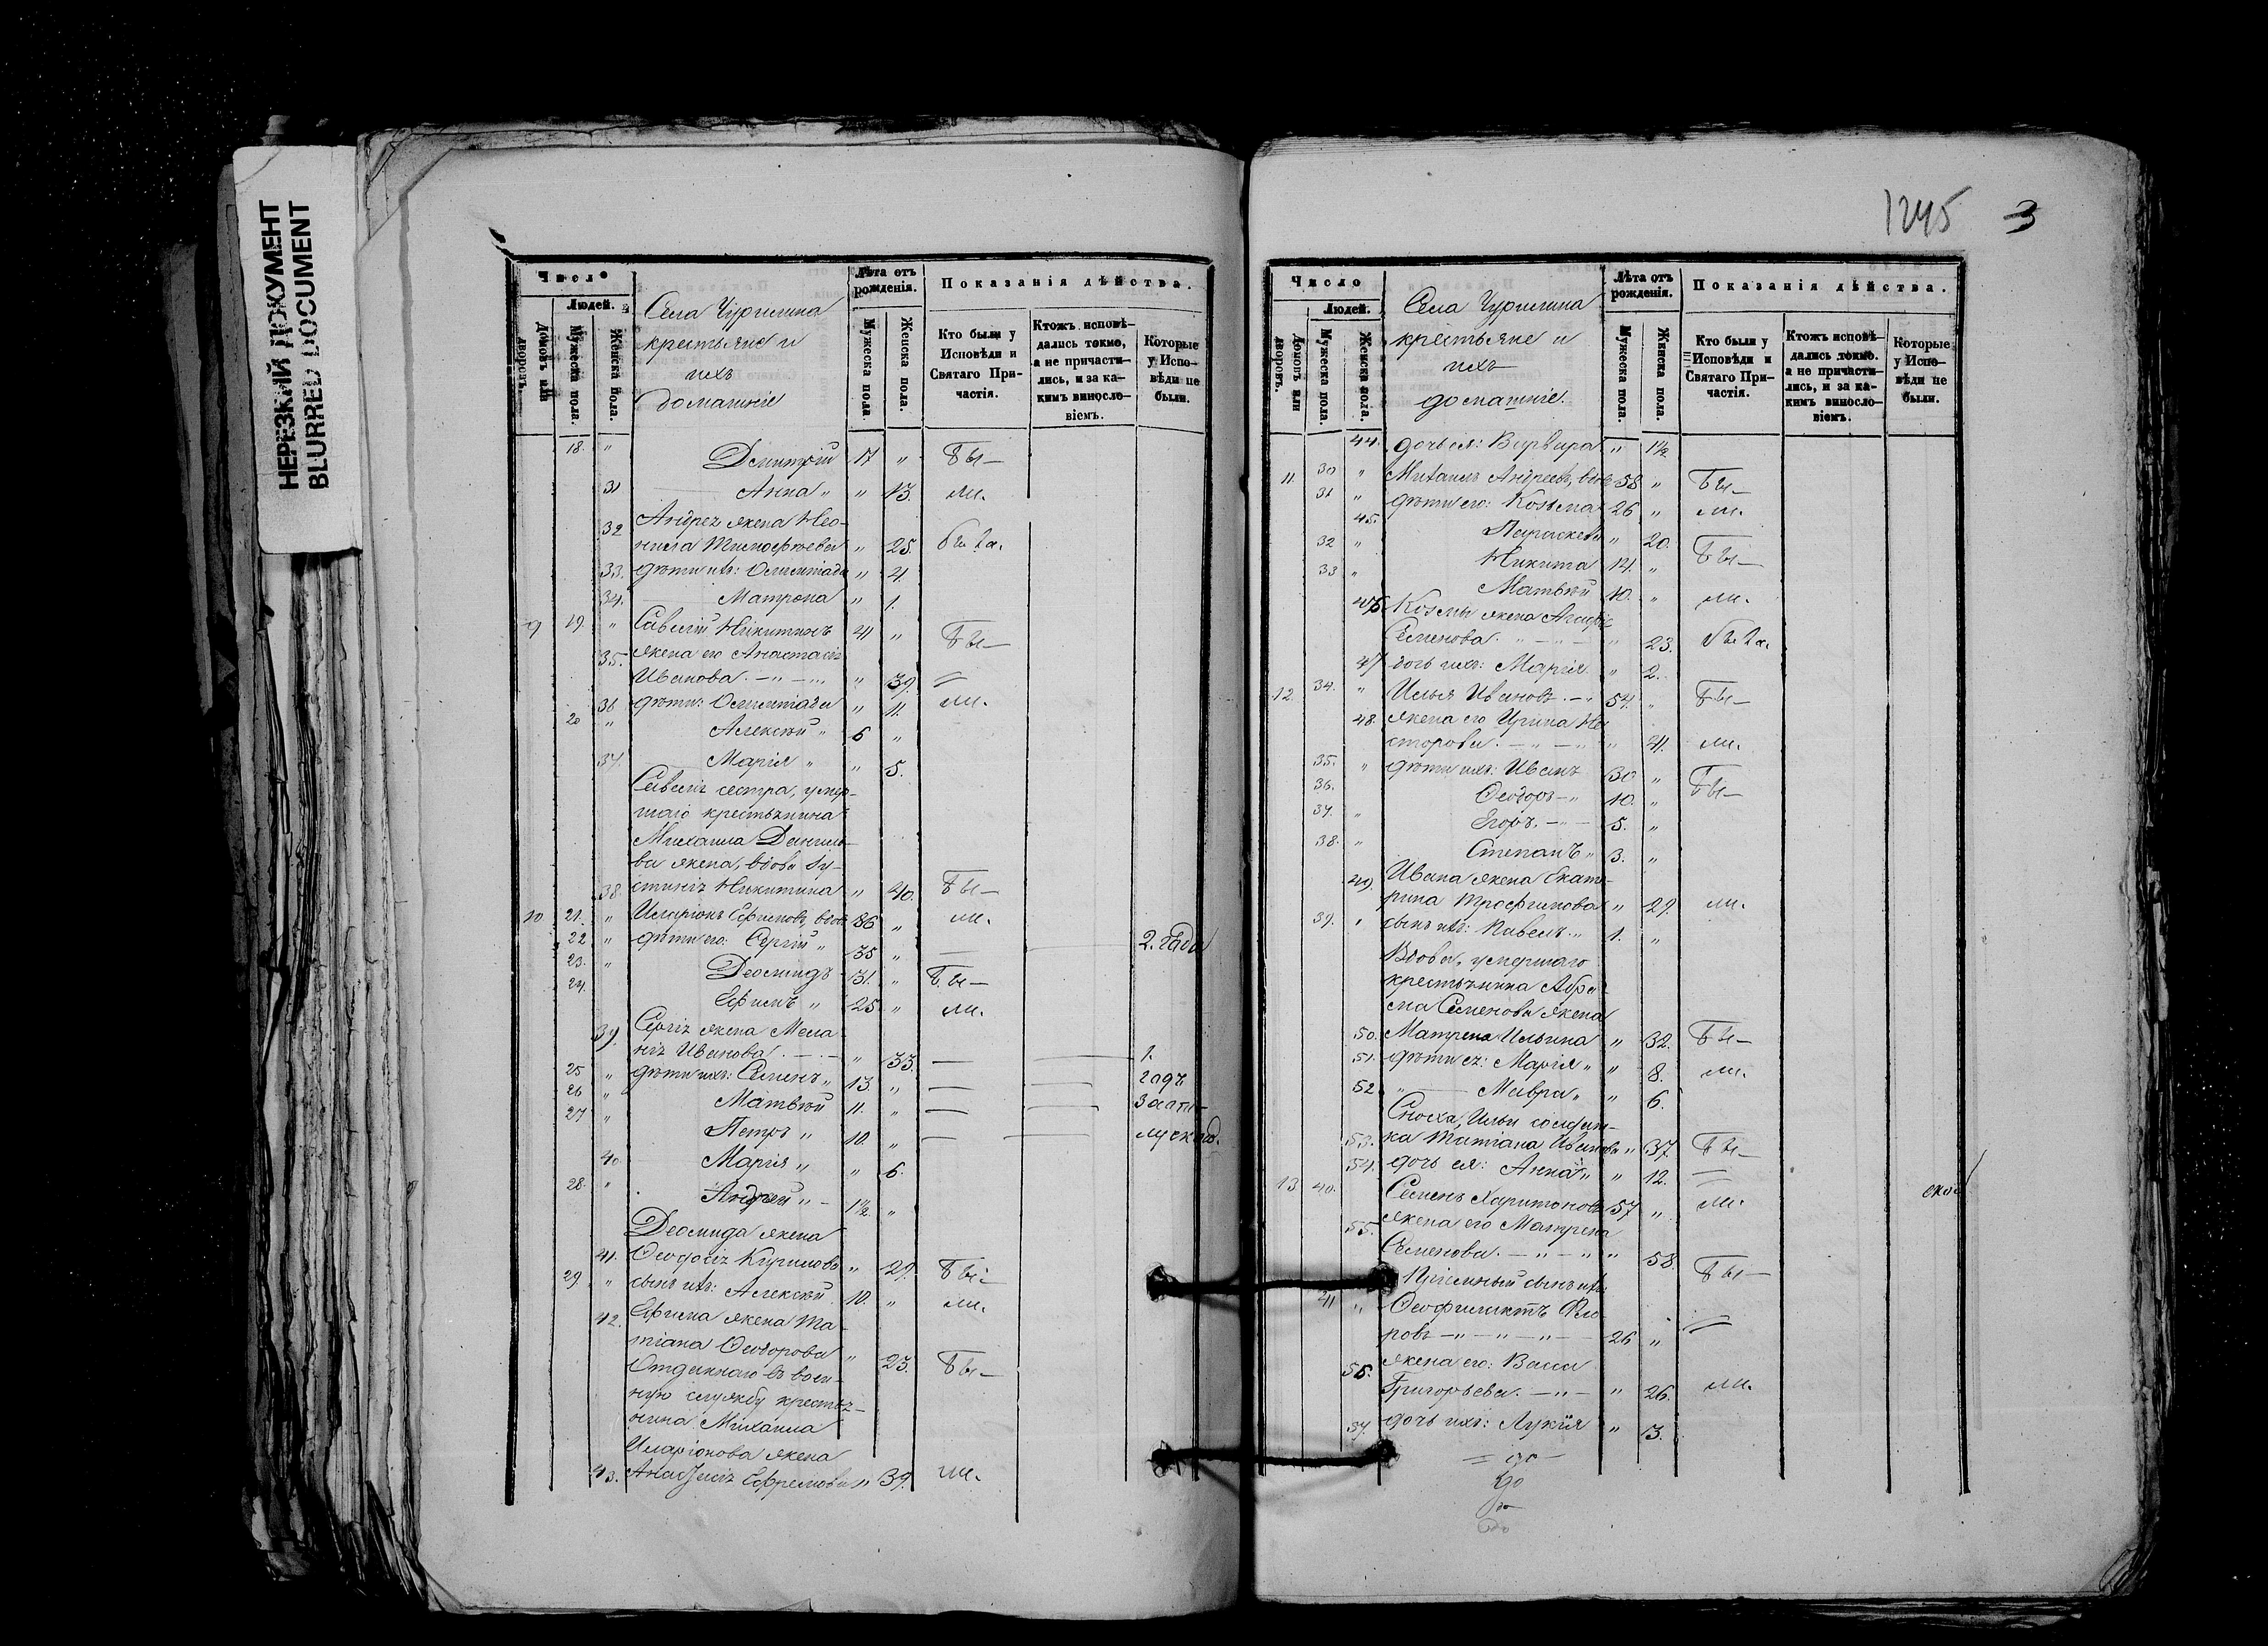 НЕРЕЗКИЙ ДОКУМЕНТ
BLURRED DOCUMENT
Число
Людей.
Домовъ или дворовъ.
Мужеска пола.
Женска пола.
Села Чурилина
крестьяне и
ихъ
домашніе
Лѣта отъ рожденія.
Мужеска пола.
Женска пола.
Показанія дѣйства.
Кто были у Исповѣди и Святаго Причастія.
Ктожъ исповѣдались токмо, а не причастились, и за какимъ винословіемъ.
Которые у Исповѣди не были.
18. " Димитрій 17 " Бы-
31 Анна " " 13 ли.
Андрея жена Нео-
32 нила Тимофеева " 25. была.
33. дѣти ихъ: Олимпіада " 4
34. Матрона " 1.
9 19. " Савелій Никитинъ 41 " Бы-
35. жена его Анастасія
Иванова. - " - " " 39.
36 дѣти: Олимпіада " 11. ли.
20 " Алексѣй " 6 "
37. Марія " " 5.
Савелія сестра, умер-
шаго крестьянина
Михаила Данило-
ва жена, вдова Іу-
38. стинія Никитина " 40. Бы-
10. 21. " Иларіонъ Ефимовъ, вдов 86 " ли.
22 " дѣти его: Сергій " 35 " — — 2. года
23. " Деомидъ 31. " Бы-
24. Ефимъ " 25 " ли.
39. Сергія жена Мела-
нія Иванова. - " 33. — — 1.
25 " дѣти ихъ: Семенъ " 13. " — — годъ
26 " Матвѣй 11. " — — за отл-
27 " Петръ " 10. " — — учкою.
40 Марія " " 6.
28. " Андрей " - 1½. "
Деомида жена
41. Ѳеодосія Кирилова " 29. Бы-
29. " сынъ ихъ: Алексѣй 10. " ли.
42. Ефима жена Та-
тіана Ѳеодорова " 23. Бы-
Отданнаго въ воен-
ную службу крестья-
нина Михаила
Иларіонова жена
43. Анастасія Ефремова " 39. ли.
1245 3
Число
Людей.
Домовъ или дворовъ.
Мужеска пола.
Женска пола.
Села Чурилина
крестьяне и
ихъ
домашніе.
Лѣта отъ рожденія.
Мужеска пола.
Женска пола.
Показанія дѣйства.
Кто были у Исповѣди и Святаго Причастія.
Ктожъ исповѣдались токмо, а не причастились, и за какимъ винословіемъ.
Которые у Исповѣди не были.
44. дочь ея: Варвара " 1½
11 30 " Михаилъ Андреевъ, вдов 58 " Бы-
31 " дѣти его: Козьма 26 " ли.
45. Параскева " 20.
32 " Никита 14. " Бы-
33 " Матвѣй 10. " ли.
46 Козмы жена Агафія
Семенова. " - " 23. была.
47 дочь ихъ: Марія " 2.
12. 34. " Илья Ивановъ. - " 54. " Бы-
48. жена его Ирина Не-
сторова. - " - " 41. ли.
35. " дѣти ихъ: Иванъ 30 " Бы-
36. Ѳеодоръ - " 10. "
37. " Егоръ. - " - 5. "
38. " Степанъ " 3. "
49. Ивана жена Екате-
рина Трофимова " 29. ли.
39. " сынъ ихъ: Павелъ " 1. "
Вдова, умершаго
крестьянина Абра-
ма Семенова жена
50. Матрена Ильина " 32. Бы-
51. дѣти ея: Марія " " 8. ли.
52 " Мавра " " 6.
Сноха, Ильи солдат-
53. ка Татіана Иванова " 37. Бы-
54. дочь ея: Анна " " 12.
13 40. Семенъ Харитоновъ 57 " ли.
55. жена его Матрена
Семенова. - " - " " 58.
Пріемный сынъ ихъ Бы-
41 " Ѳеофилактъ Фло-
ровъ - " - " - " - 26 "
56. жена его: Васса
Григорьева. - " - " 26. ли.
57. дочь ихъ: Лукія " 3.